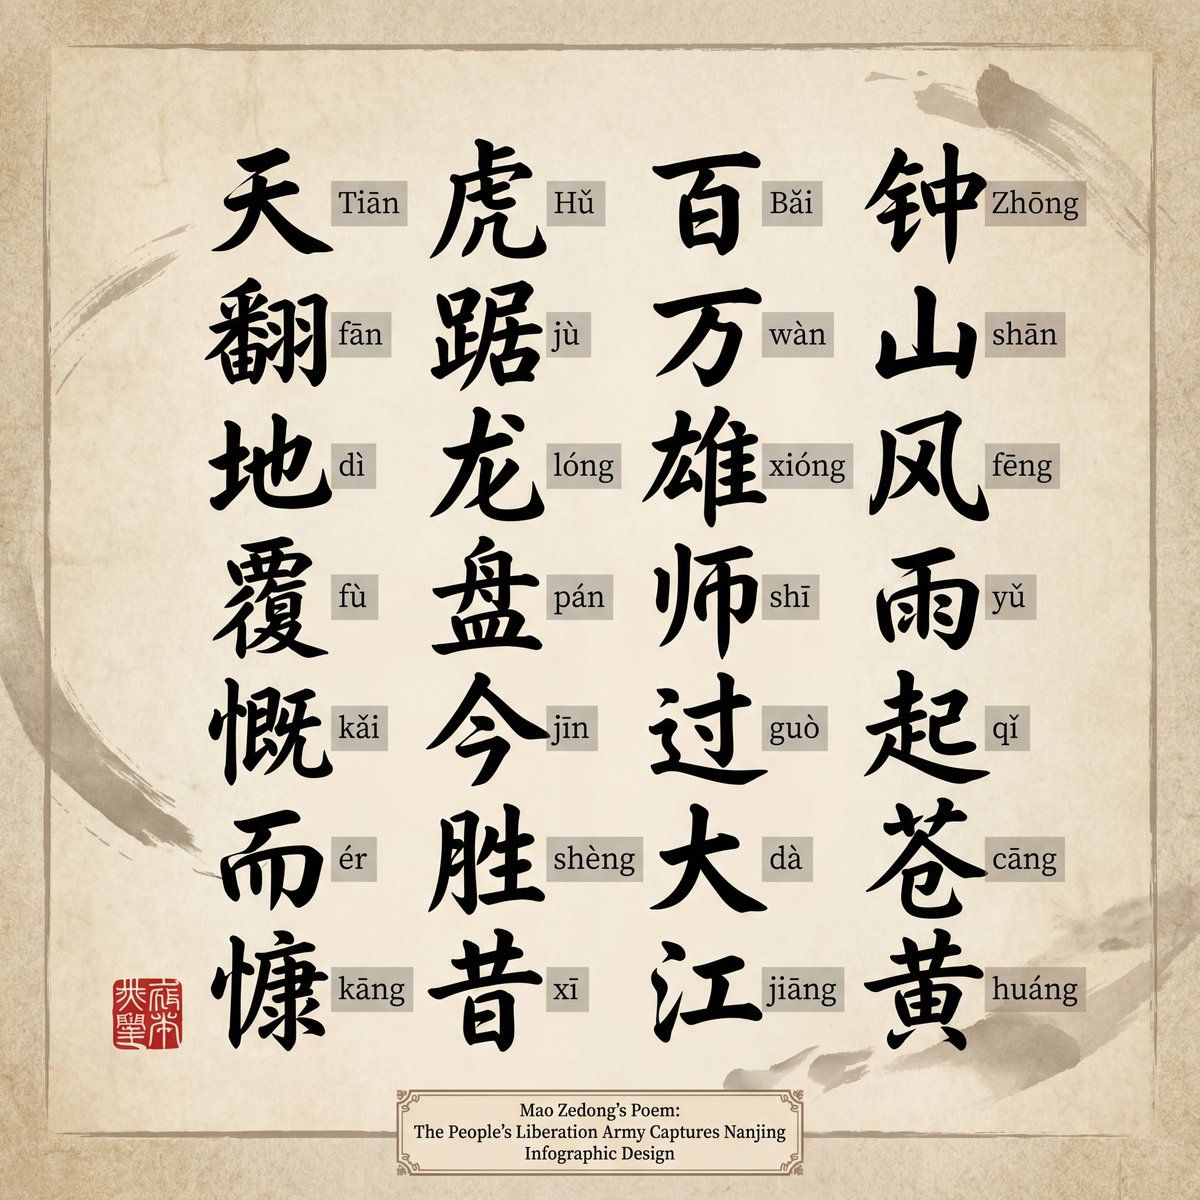 钟山风雨起苍黄
Zhōng shān fēng yǔ qǐ cāng huáng
百万雄师过大江
Bǎi wàn xióng shī guò dà jiāng
虎踞龙盘今胜昔
Hǔ jù lóng pán jīn shèng xī
天翻地覆慨而慷
Tiān fān dì fù kǎi ér kāng
Mao Zedong’s Poem:
The People’s Liberation Army Captures Nanjing
Infographic Design